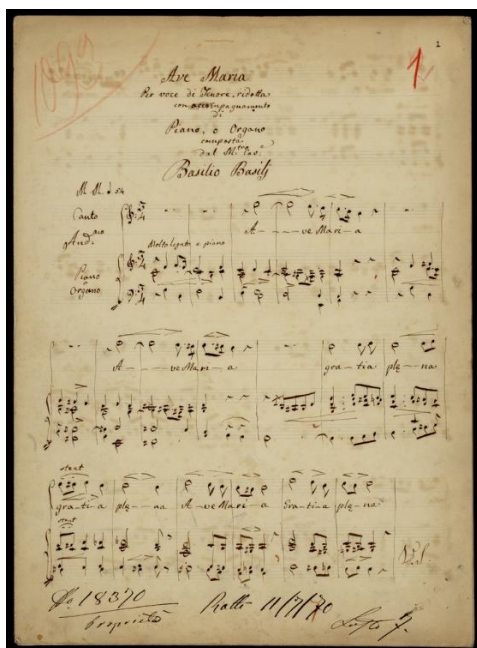 1
1
Ave Maria
Per voce di Tenore, ridotta
con accompagnamento
di
Piano, o Organo
composta
dal M.tro Cav.e
Basilio Basilj
M. M. 54
Canto
And.no
Molto legato e piano
Piano
o
Organo
A - - - ve Mari - a
A - - ve Mari - a gra - tia ple - na
stent
gra - ti - a ple - na A - ve Mari - a Gra - tia ple - na
stent
No 18370
Proprietà
Ratti 11/7/70